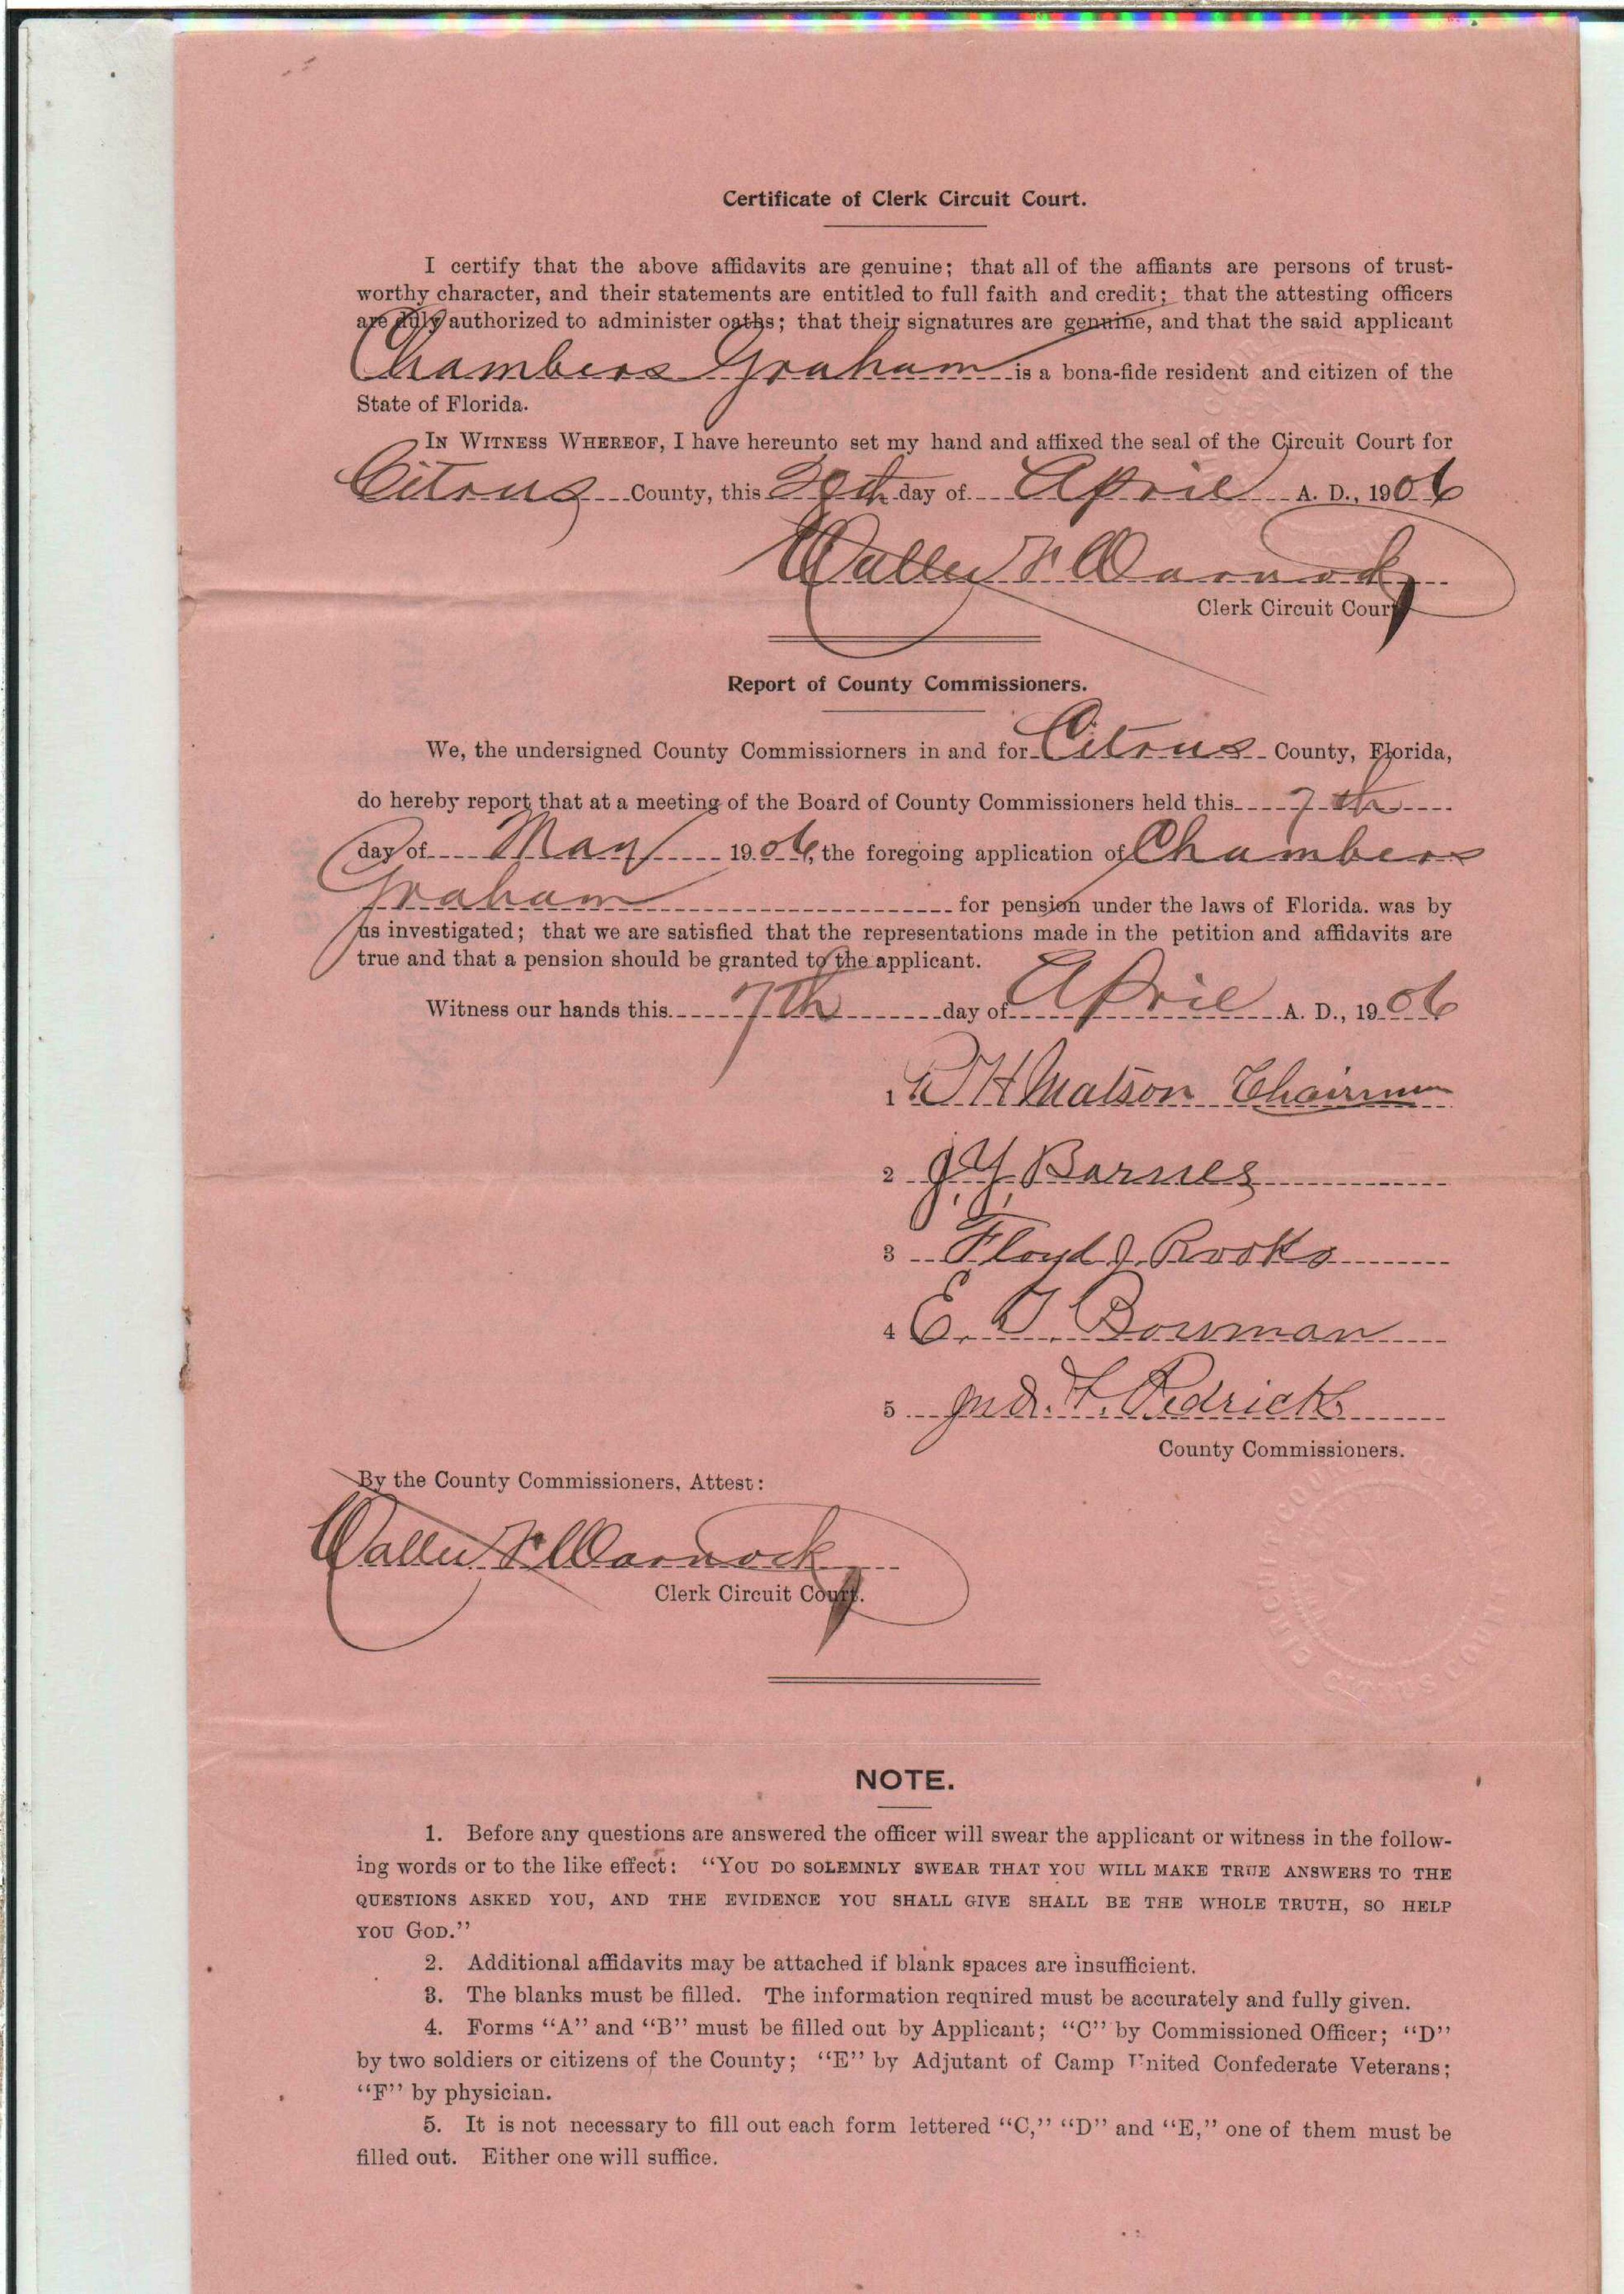 Certificate of Clerk Circuit Court.
I certify that the above affidavits are genuine; that all of the affiants are persons of trust-
worthy character, and their statements are entitled to full faith and credit; that the attesting officers
are duly authorized to administer oaths; that their signatures are genuine, and that the said applicant
Chambers Graham is a bona-fide resident and citizen of the
State of Florida.
IN WITNESS WHEREOF, I have hereunto set my hand and affixed the seal of the Circuit Court for
Citrus County, this day of April A. D., 1906
Walter F Warnock
Clerk Circuit Court
Report of County Commissioners.
We, the undersigned County Commissiorners in and for Citrus County, Florida,
do hereby report that at a meeting of the Board of County Commissioners held this 7th
day of May 1906, the foregoing application of Chambers
Graham for pension under the laws of Florida. was by
us investigated; that we are satisfied that the representations made in the petition and affidavits are
true and that a pension should be granted to the applicant.
Witness our hands this 7th day of April A. D., 1906
1 H Matson Chairman
2 J.Y. Barnes
3 Floyd J. Rooks
4 E. T. Bowman
5 Jno. F. Pedrick
County Commissioners.
By the County Commissioners, Attest:
Walter F Warnock
Clerk Circuit Court.
CIRCUIT COURT CITRUS COUNTY
NOTE.
1. Before any questions are answered the officer will swear the applicant or witness in the follow-
ing words or to the like effect: "YOU DO SOLEMNLY SWEAR THAT YOU WILL MAKE TRUE ANSWERS TO THE
QUESTIONS ASKED YOU, AND THE EVIDENCE YOU SHALL GIVE SHALL BE THE WHOLE TRUTH, SO HELP
YOU GOD."
2. Additional affidavits may be attached if blank spaces are insufficient.
3. The blanks must be filled. The information required must be accurately and fully given.
4. Forms "A" and "B" must be filled out by Applicant; "C" by Commissioned Officer; "D"
by two soldiers or citizens of the County; "E" by Adjutant of Camp United Confederate Veterans;
"F" by physician.
5. It is not necessary to fill out each form lettered "C," "D" and "E," one of them must be
filled out. Either one will suffice.